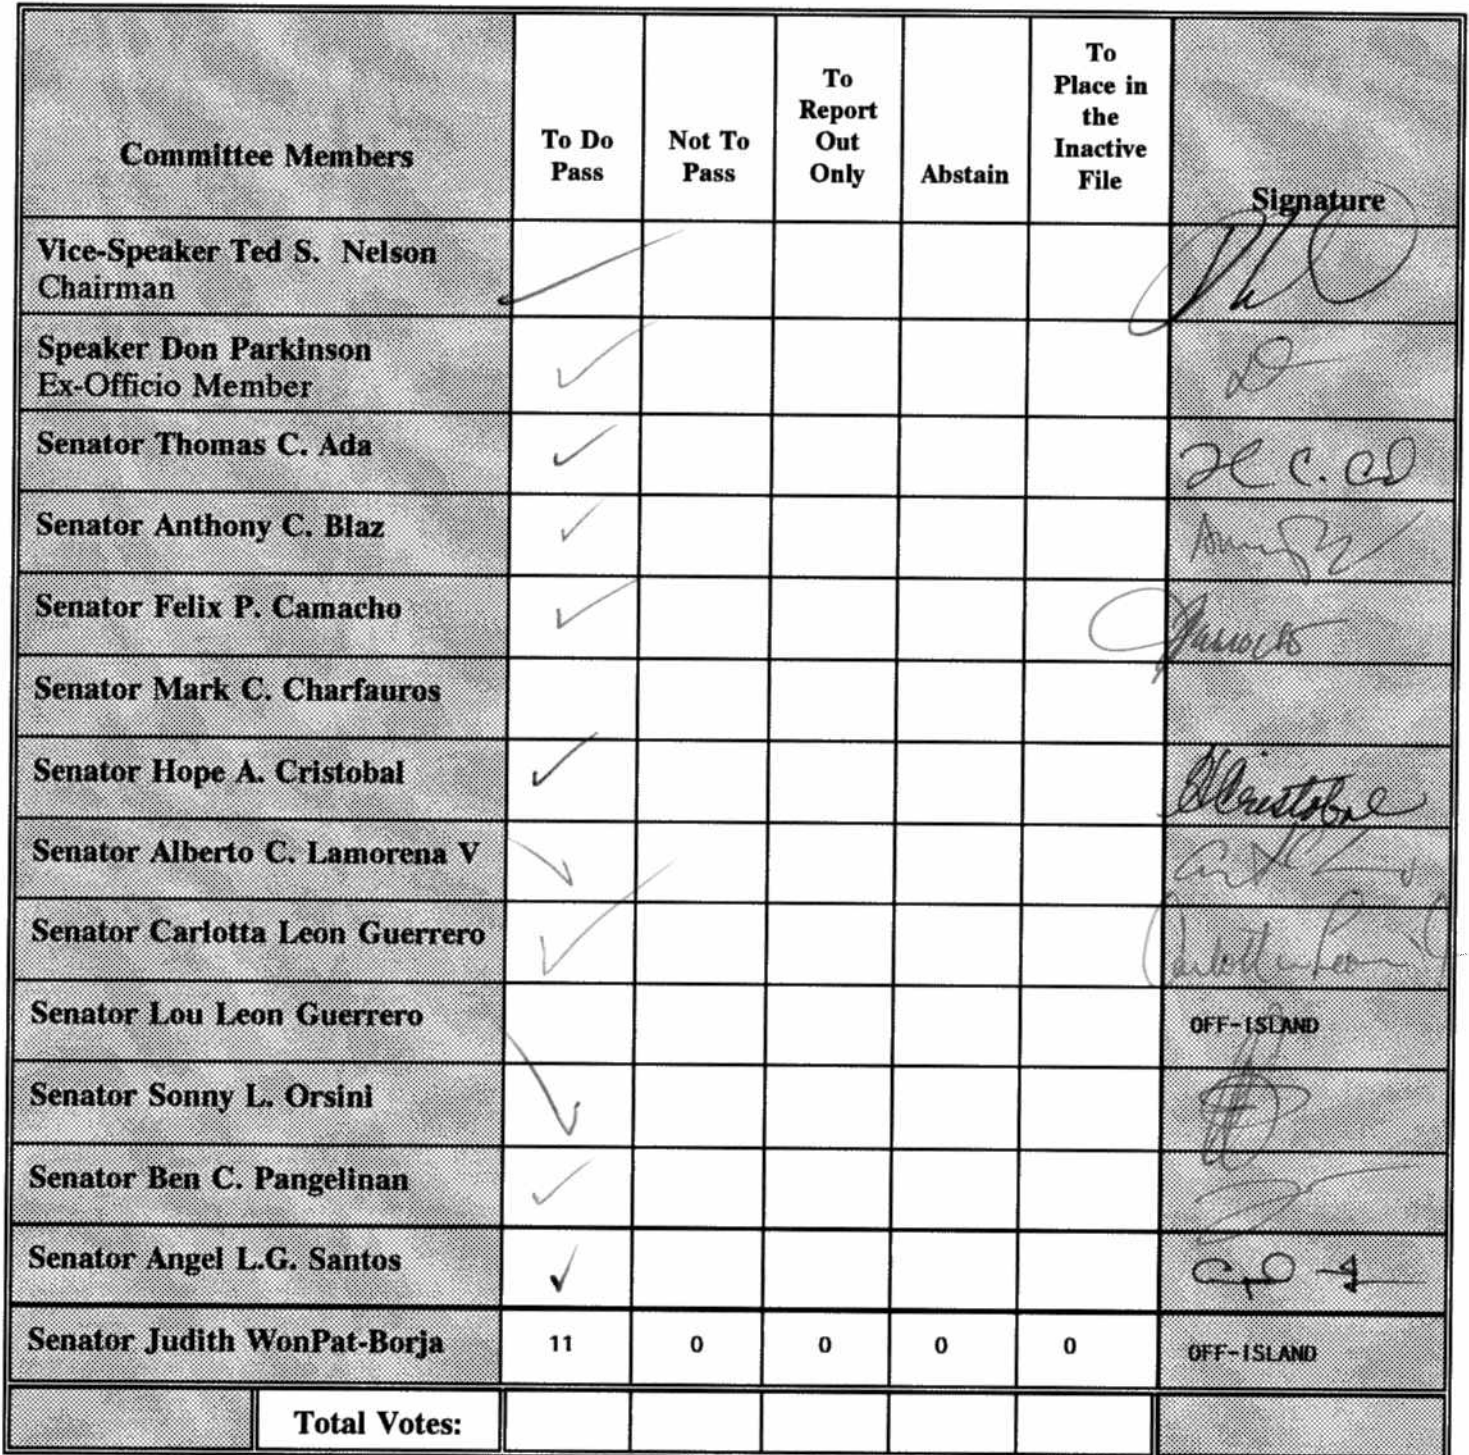 Committee Members
To Do Pass
Not To Pass
To Report Out Only
Abstain
To Place in the Inactive File
Signature
Vice-Speaker Ted S. Nelson
Chairman
Speaker Don Parkinson
Ex-Officio Member
Senator Thomas C. Ada
Senator Anthony C. Blaz
Senator Felix P. Camacho
Senator Mark C. Charfauros
Senator Hope A. Cristobal
HCristobal
Senator Alberto C. Lamorena V
Senator Carlotta Leon Guerrero
Senator Lou Leon Guerrero OFF-ISLAND
Senator Sonny L. Orsini
Senator Ben C. Pangelinan
Senator Angel L.G. Santos
Senator Judith WonPat-Borja 11 0 0 0 0 OFF-ISLAND
Total Votes: